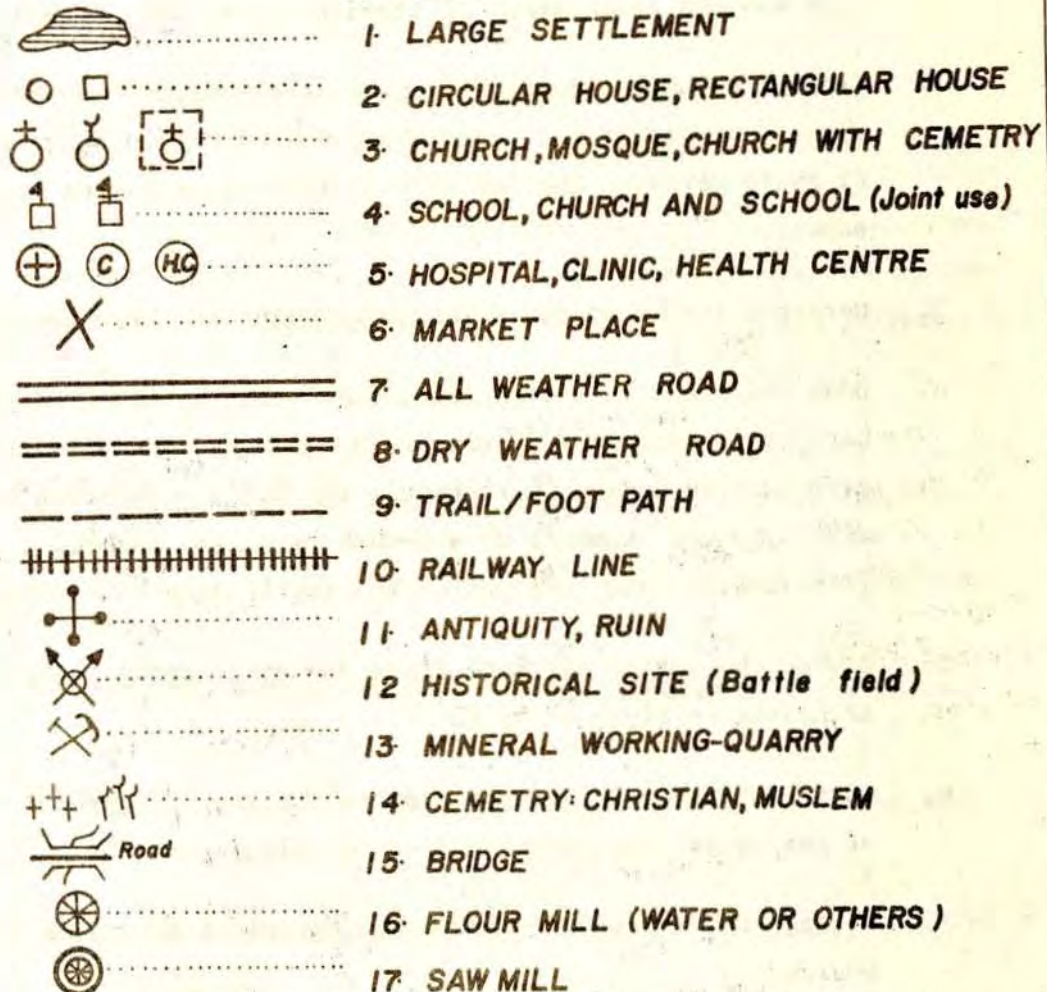 1. LARGE SETTLEMENT
2. CIRCULAR HOUSE, RECTANGULAR HOUSE
3. CHURCH, MOSQUE, CHURCH WITH CEMETRY
4. SCHOOL, CHURCH AND SCHOOL (Joint use)
C H.C 5. HOSPITAL, CLINIC, HEALTH CENTRE
6. MARKET PLACE
7. ALL WEATHER ROAD
8. DRY WEATHER ROAD
9. TRAIL/FOOT PATH
10. RAILWAY LINE
11. ANTIQUITY, RUIN
12 HISTORICAL SITE (Battle field)
13. MINERAL WORKING-QUARRY
14. CEMETRY: CHRISTIAN, MUSLEM
Road 15. BRIDGE
16. FLOUR MILL (WATER OR OTHERS)
17. SAW MILL